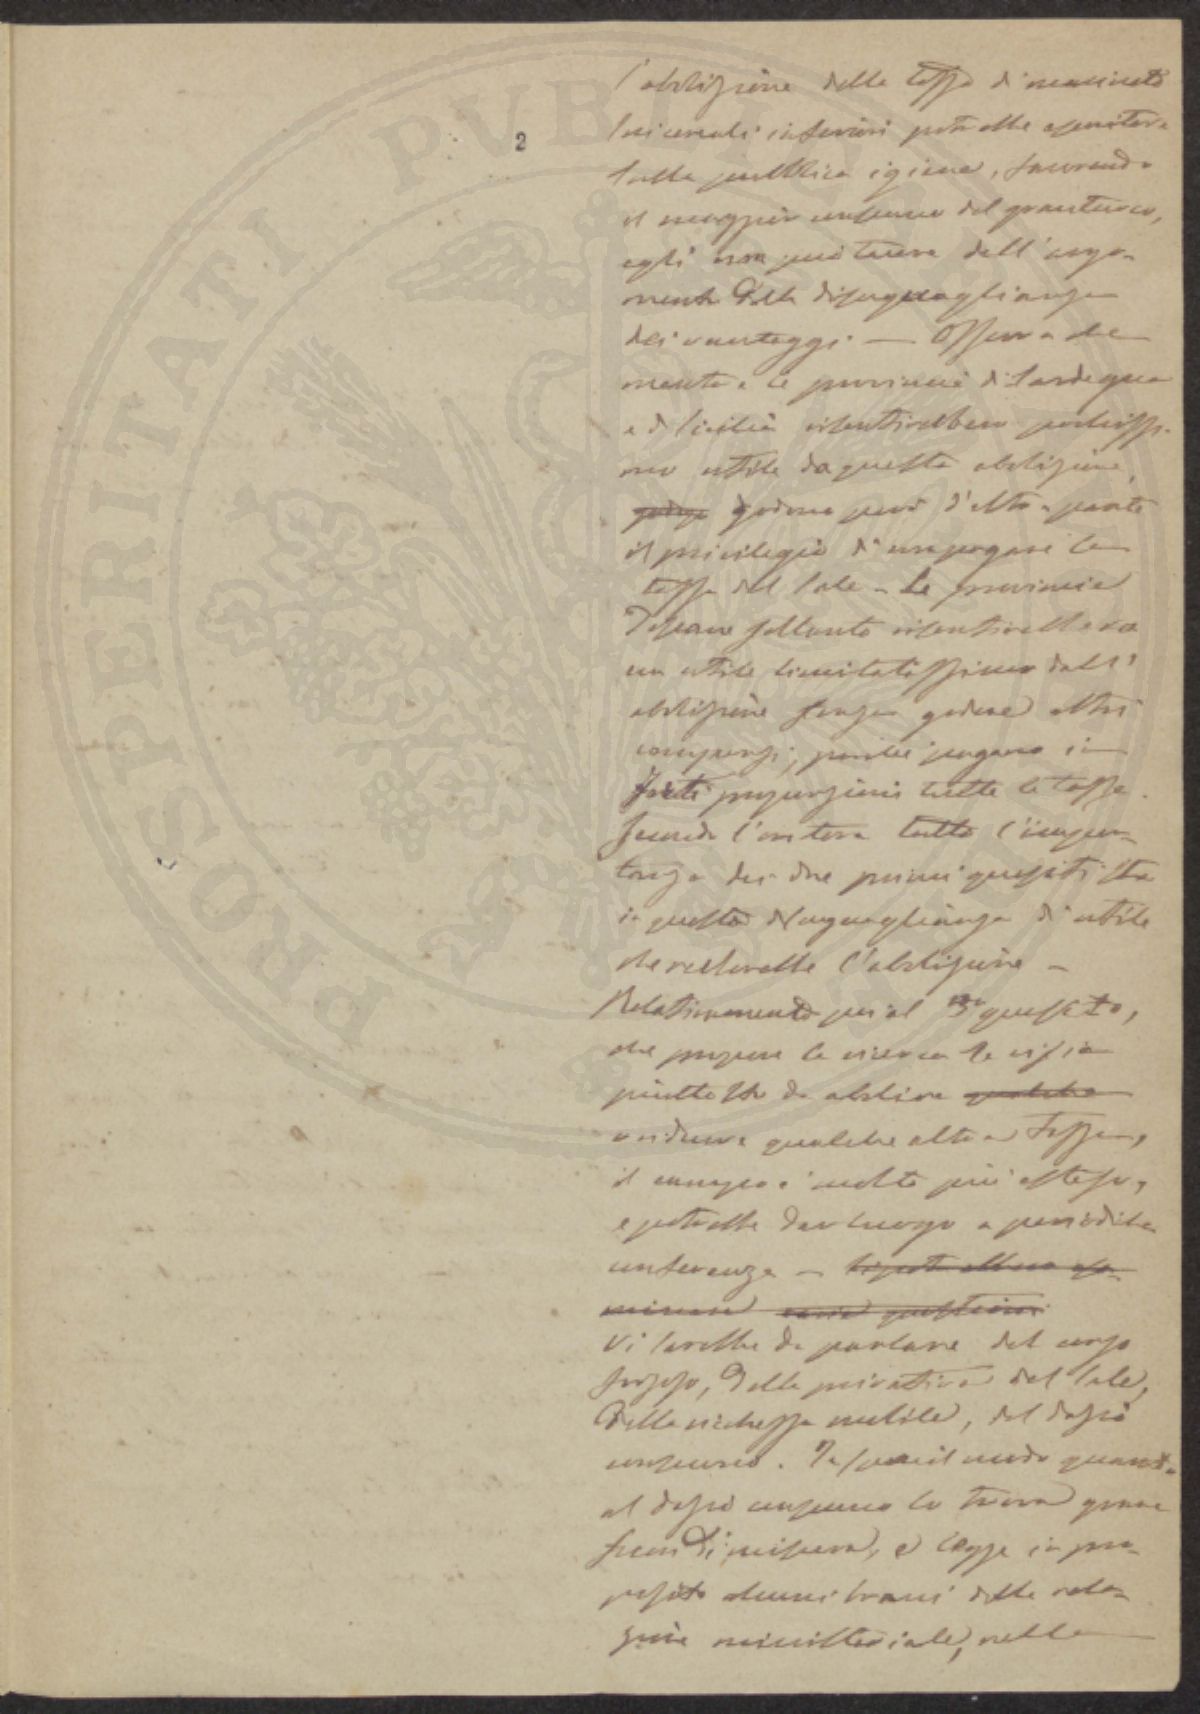 2
PROSPERITATI PUBLICAE
l'abolizione della tassa di macinato
sui cereali inferiori potrebbe
sulla pubblica igiene, favorendo
il maggior consumo del granturco,
egli non può tacere dell'argo-
mento della disuguaglianza
dei vantaggi. — Osserva che
mentre le provincie di Sardegna
e di Sicilia risentirebbero pochissi-
mo utile da questa abolizione,
godono però d'altra parte
il privilegio di non pagare la
tassa del sale – Le provincie
Toscane soltanto risentirebbero
un utile limitatissimo dall'
abolizione senza godere altri
compensi, perché pagano in
forti proporzioni tutte le tasse.
Secondo l'oratore tutta l'impor-
tanza dei due primi quesiti sta
in questa disuguaglianza di utile
che recherebbe l'abolizione –
Relativamente poi al 3º quesito,
che propone la ricerca se vi sia
piuttosto da abolire qualche
o ridurre qualche altra tassa,
il campo è molto più esteso,
e potrebbe dar luogo a periodiche
conferenze – si potrebbero esa-
minare varie questioni
Vi sarebbe da parlare del corso
forzoso, della privativa del sale,
della ricchezza mobile, del dazio
consumo. In special modo quanto
al dazio consumo lo trova grave
fuor di misura, e legge in pro-
posito alcuni brani della rela-
zione ministeriale, nella